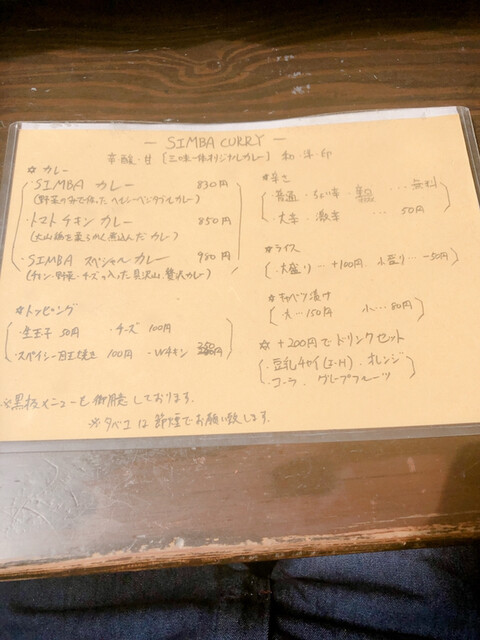 — SIMBA CURRY —
辛・酸・甘 [三味一体オリジナルカレー] 和・洋・印
☆カレー
・SIMBA カレー 830円
(野菜のみで作ったヘルシーベジタブルカレー)
・トマトチキンカレー 850円
(大山鶏を柔らかく煮込んだカレー)
・SIMBA スペシャルカレー 980円
(チキン・野菜・チーズの入った具沢山、贅沢カレー)
☆トッピング
・生玉子 50円 ・チーズ 100円
・スパイシー目玉焼き 100円 ・Wチキン
☆辛さ
・普通・ちょい辛 … 無料
・大辛・激辛 … 50円
☆ライス
・大盛り … +100円、小盛り … -50円
☆キャベツ漬け
大 … 150円 小 … 80円
☆ +200円でドリンクセット
・豆乳チャイ(I・H)・オレンジ
・コーラ・グレープフルーツ
※黒板メニューも御用意しております。
※タバコは節煙でお願い致します。